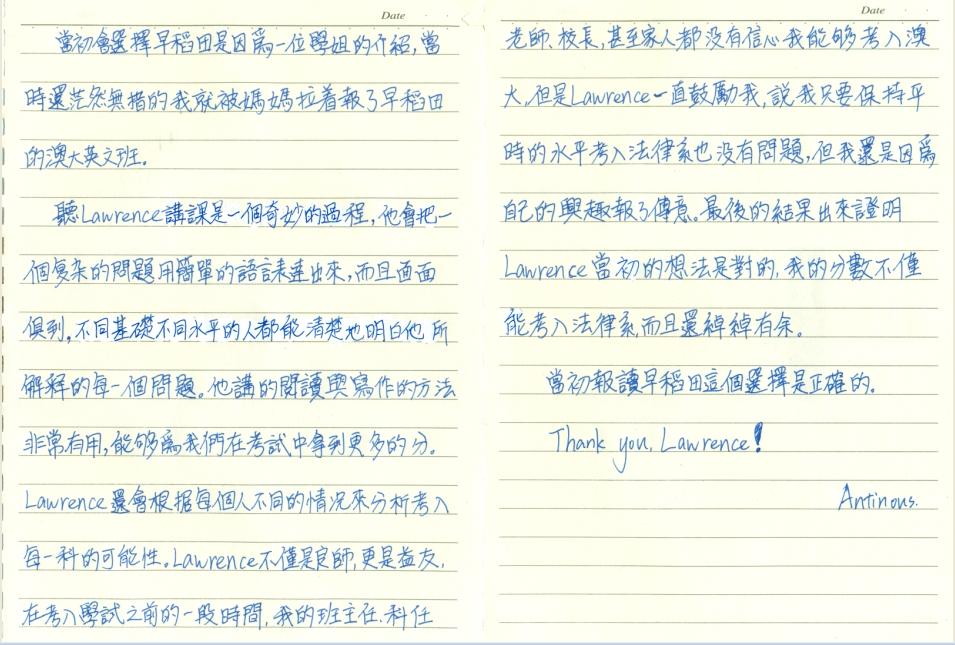 Date
當初會選擇早稻田是因爲一位學姐的介紹,當
時還茫然無措的我就被媽媽拉着報了早稻田
的澳大英文班。
聽Lawrence講課是一個奇妙的過程,他會把一
個复杂的問題用簡單的語言表達出來,而且面面
俱到,不同基礎不同水平的人都能清楚地明白他所
解釋的每一個問題。他講的閱讀與寫作的方法
非常有用,能够爲我們在考試中拿到更多的分。
Lawrence還會根据每個人不同的情况來分析考入
每一科的可能性。Lawrence不僅是良師,更是益友,
在考入學試之前的一段時間,我的班主任、科任
Date
老師、校長,甚至家人都没有信心我能够考入澳
大,但是Lawrence一直鼓勵我,説我只要保持平
時的水平考入法律系也没有問題,但我還是因爲
自己的興趣報了傳意。最後的結果出來證明
Lawrence當初的想法是對的,我的分數不僅
能考入法律系,而且還綽綽有余。
當初報讀早稻田這個選擇是正確的。
Thank you, Lawrence!
Antinous.